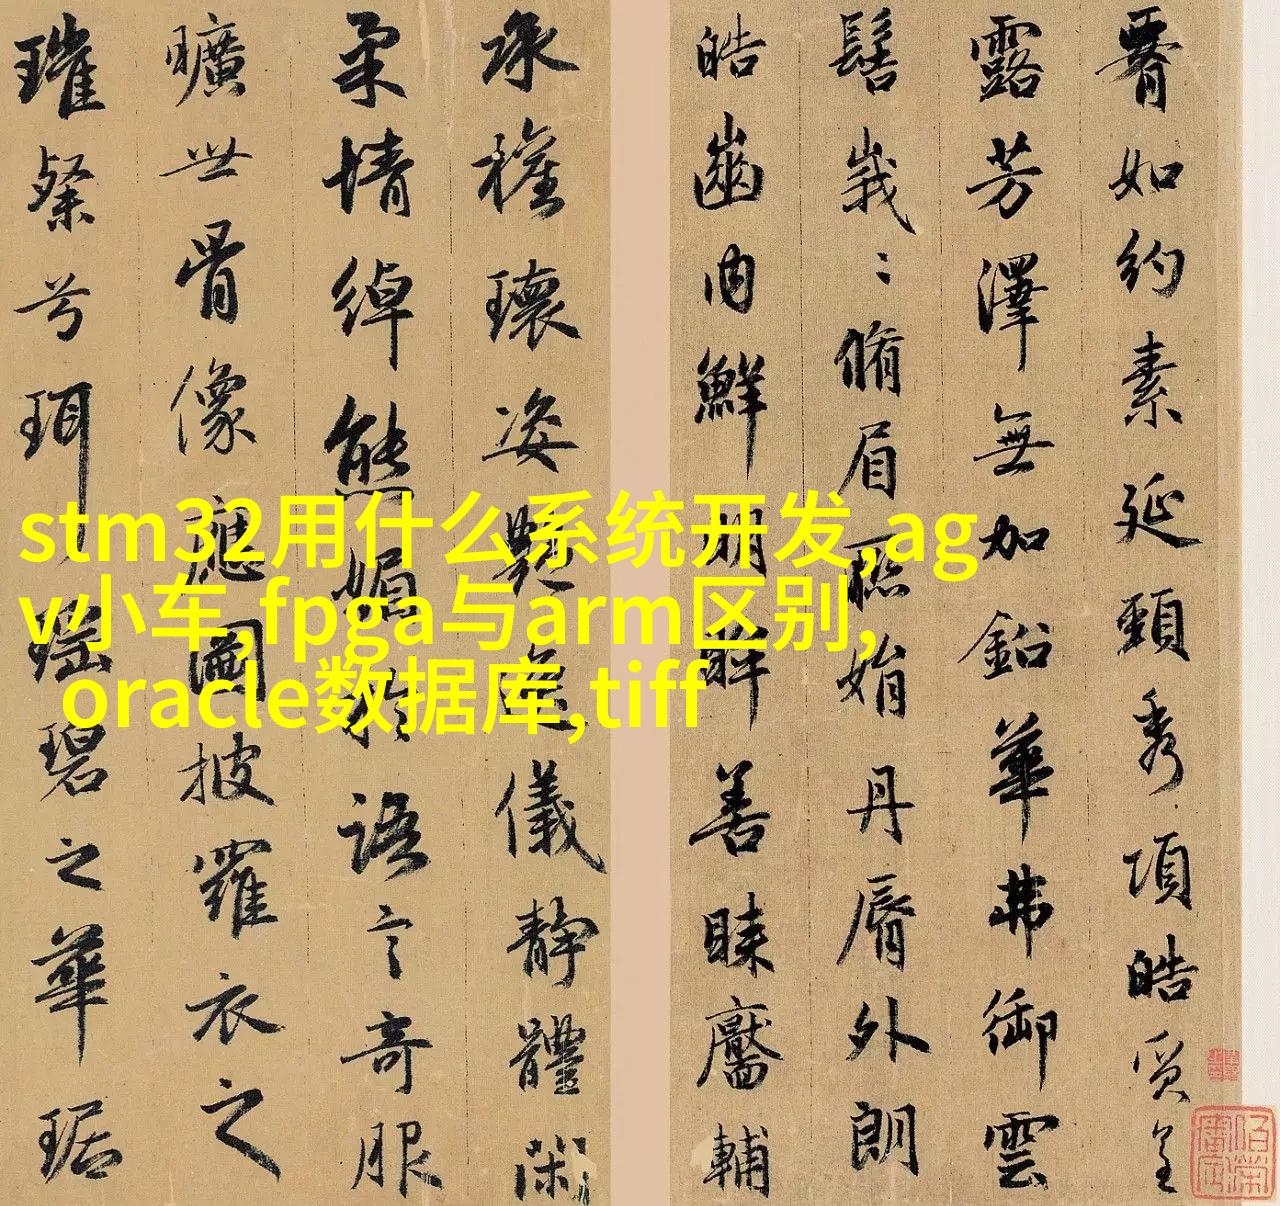 stm32用什么系统开发,ag
v小车,fpga与arm区别,
oracle数据库,tiff
腰如約素延頸秀項皓質呈
露芳澤無加鉛華弗御雲
髻峩〻脩眉聮娟丹脣外朗
皓齒内鮮明眸善睞靨輔
承權瓌姿豔逸儀靜體閑
柔情綽態媚於語言奇服
曠世骨像應圖披羅衣之
璀粲兮珥瑤碧之華琚